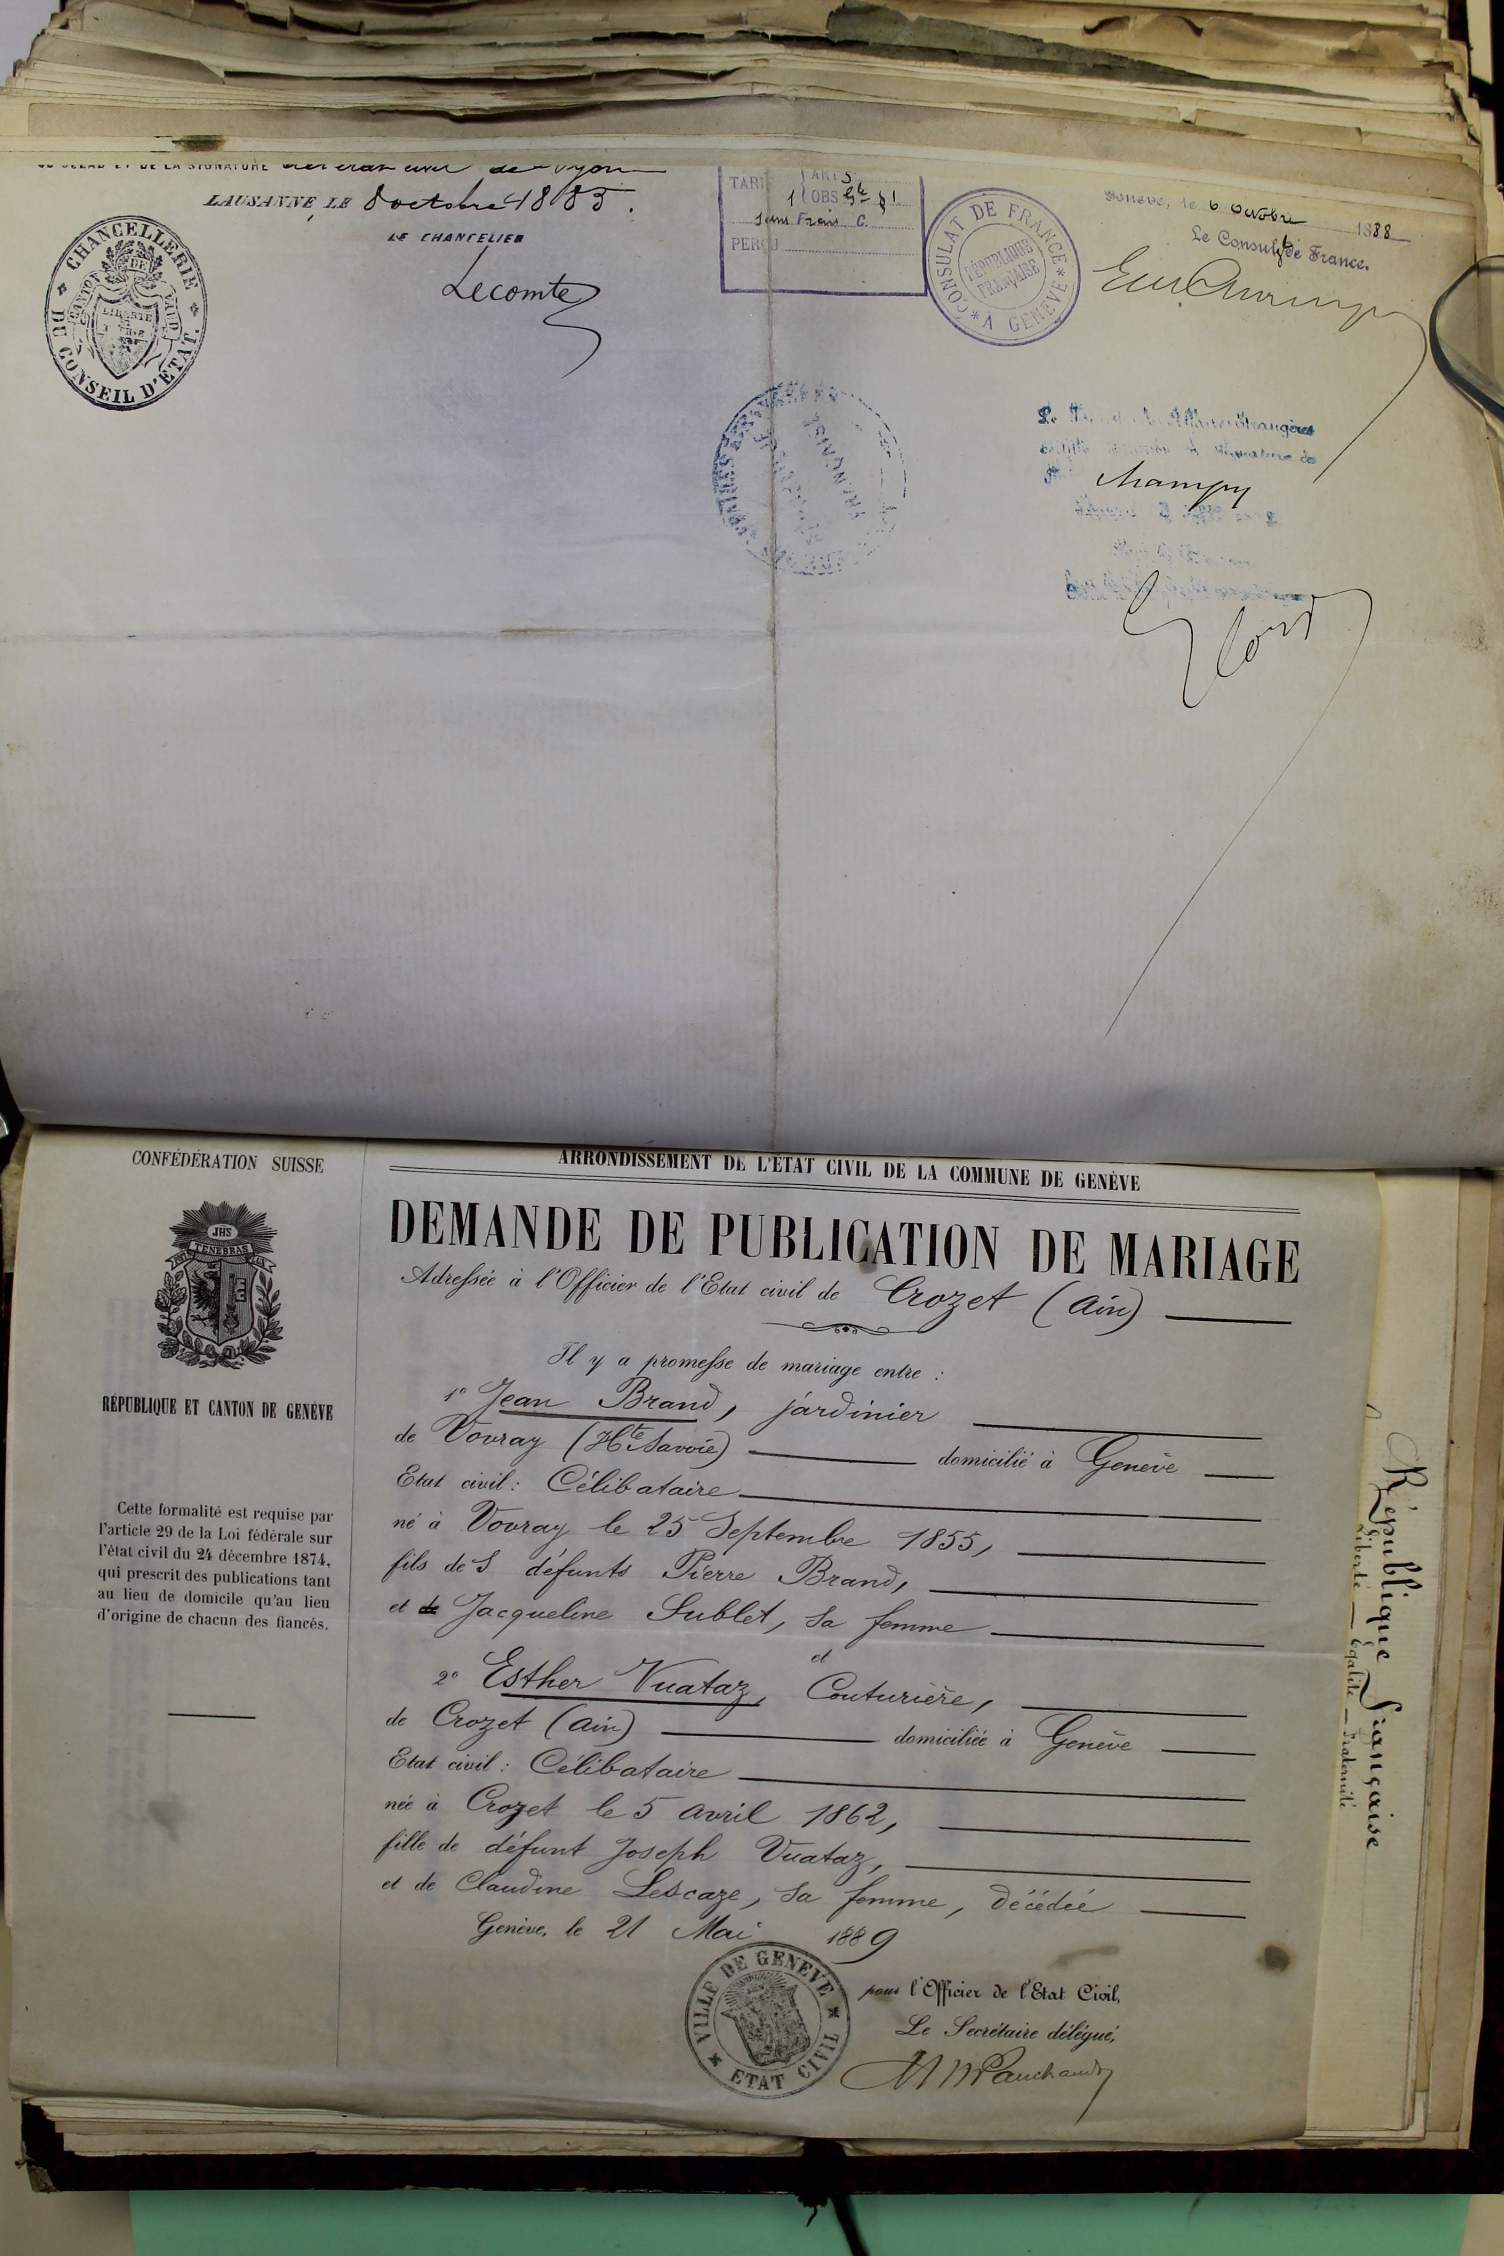 DU SCEAU ET DE LA SIGNATURE
LAUSANNE, LE 8 octobre 1885.
LE CHANCELIER
Lecomte
CHANCELLERIE
DU CONSEIL D'ÉTAT
CANTON DE VAUD
LIBERTÉ
TARIF
OBS
sans Frais
PERÇU
CONSULAT DE FRANCE
RÉPUBLIQUE
FRANÇAISE
À GENÈVE
Genève, le 6 Octobre 1888
Le Consul de France.
Champy
CONFÉDÉRATION SUISSE
JHS
TENEBRAS
RÉPUBLIQUE ET CANTON DE GENÈVE
Cette formalité est requise par
l'article 29 de la Loi fédérale sur
l'état civil du 24 décembre 1874,
qui prescrit des publications tant
au lieu de domicile qu'au lieu
d'origine de chacun des fiancés.
ARRONDISSEMENT DE L'ÉTAT CIVIL DE LA COMMUNE DE GENÈVE
DEMANDE DE PUBLICATION DE MARIAGE
Adressée à l'Officier de l'Etat civil de Crozet (Ain)
Il y a promesse de mariage entre :
1° Jean Brand, jardinier
de Vovray (Hte Savoie) domicilié à Genève
Etat civil : Célibataire
né à Vovray le 25 Septembre 1855,
fils des défunts Pierre Brand,
et de Jacqueline Sublet, sa femme
et
2° Esther Vuataz, Couturière,
de Crozet (Ain) domiciliée à Genève
Etat civil : Célibataire
née à Crozet le 5 avril 1862,
fille de défunt Joseph Vuataz,
et de Claudine Lescaze, sa femme, décédée
Genève, le 21 Mai 1889
VILLE DE GENÈVE
ETAT CIVIL
pour l'Officier de l'Etat Civil,
Le Secrétaire délégué,
Pauchaud
République Française
Liberté — Égalité — Fraternité